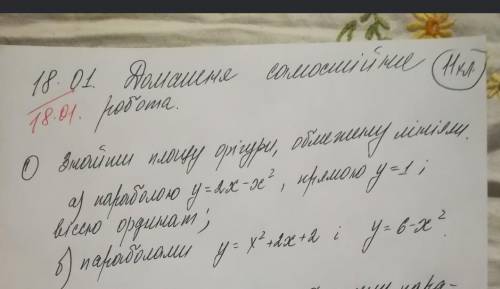 18.01. Домашня самостійне 11 кл.
18.01. робота.
① Знайти площу фігури, обмежену лініями.
а) параболою y=2x-x², прямою y=1 ;
віссю ординат ;
б) параболами y = x²+2x+2 і y=6-x².